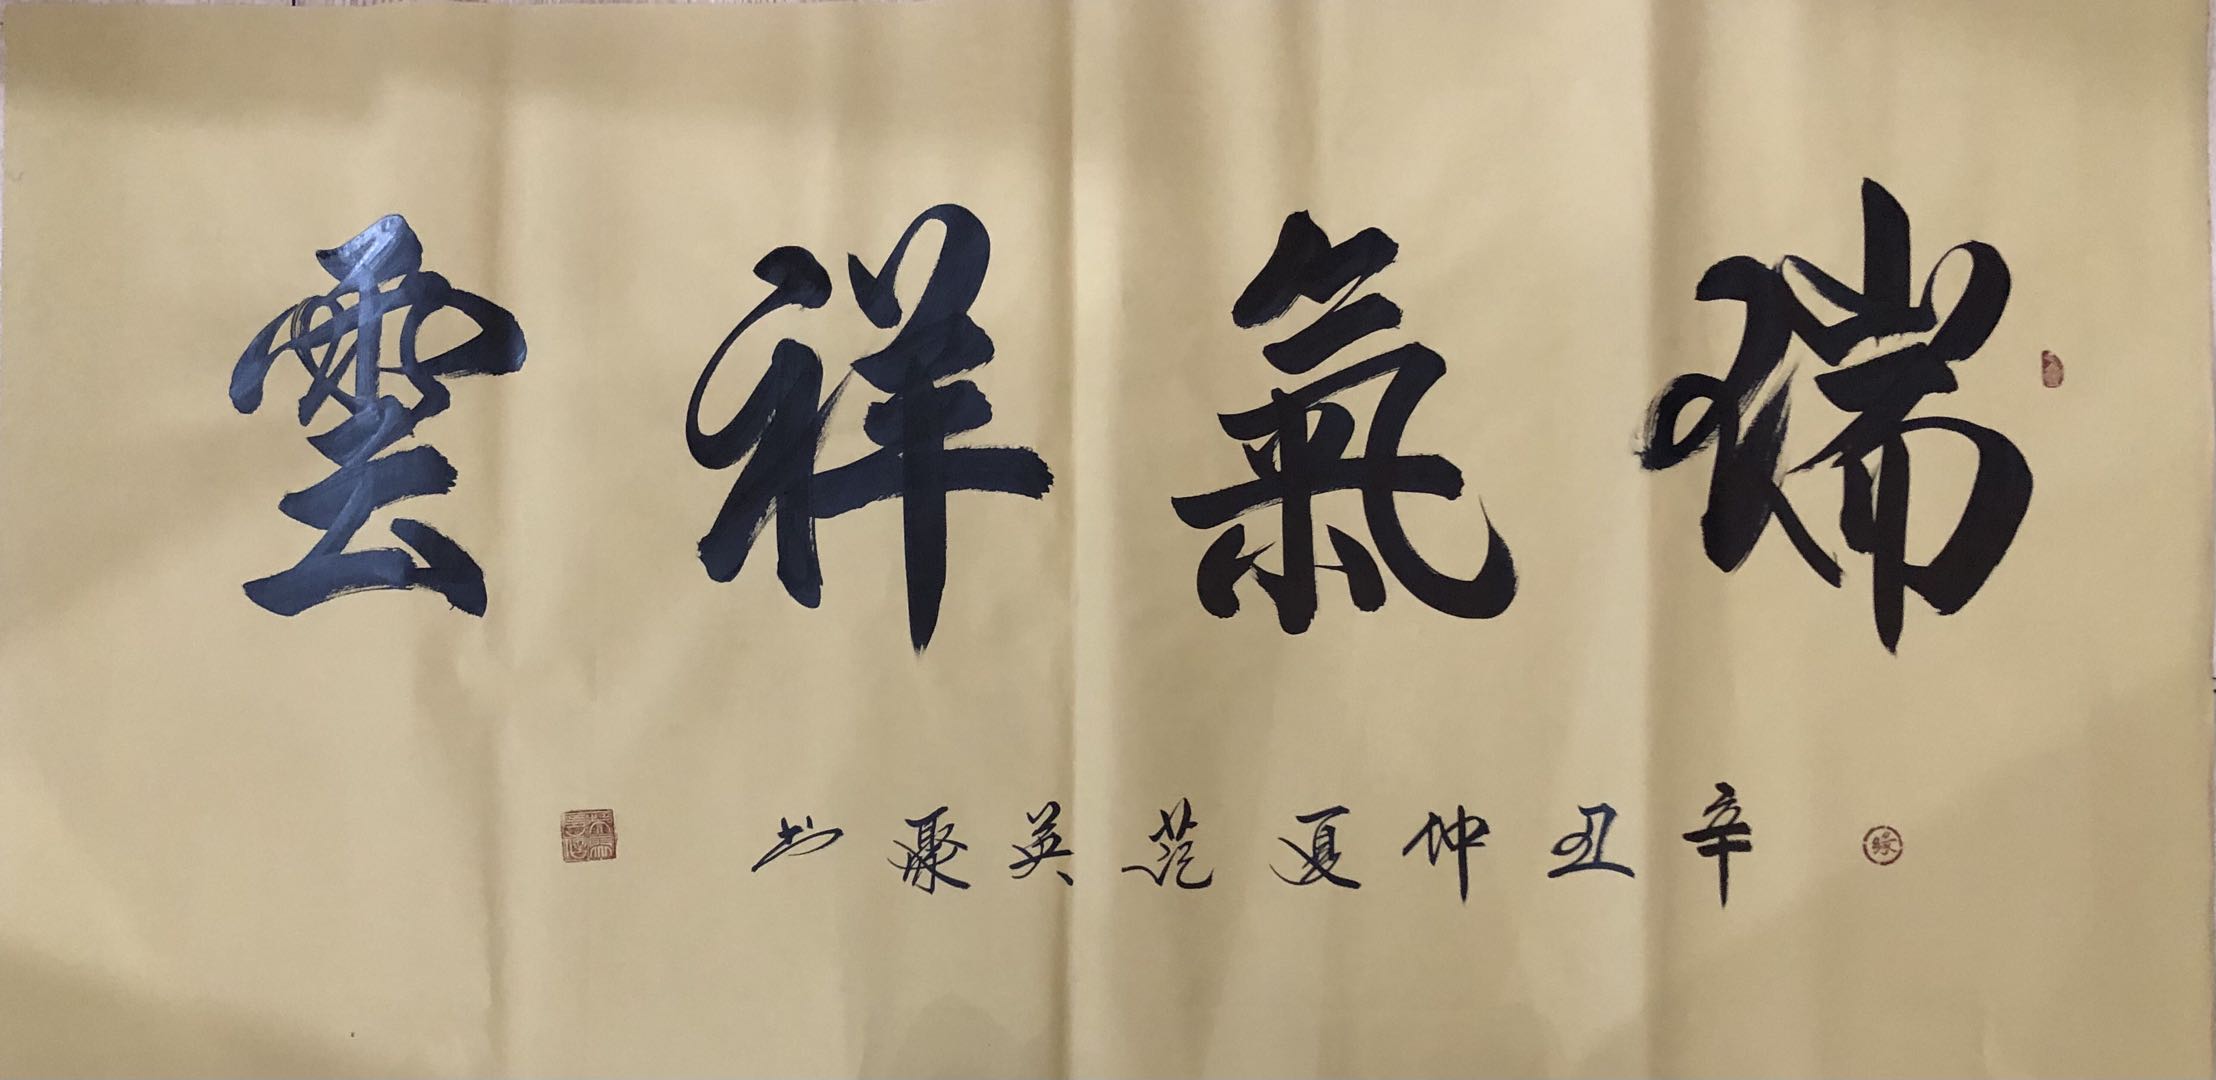 瑞氣祥雲
辛丑仲夏范英聚书
缘